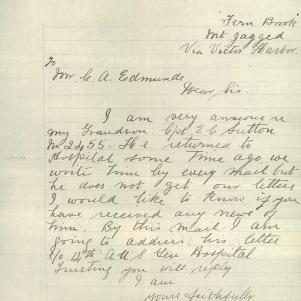 "Fern Brook"
Mt Jagged
Via Victor Harbor.
To
Mr C. A. Edmunds
Dear Sir.
I am very anxious re
my Grandson. Cpl E C Sutton
No 2455. He returned to
Hospital some time ago, we
write him by every mail but
he does not get our letters
I would like to know if you
have received any news of
him. By this mail I am
going to address his letter
C/o 4th A.G. Hospital
Trusting you will reply
I am
yours faithfully